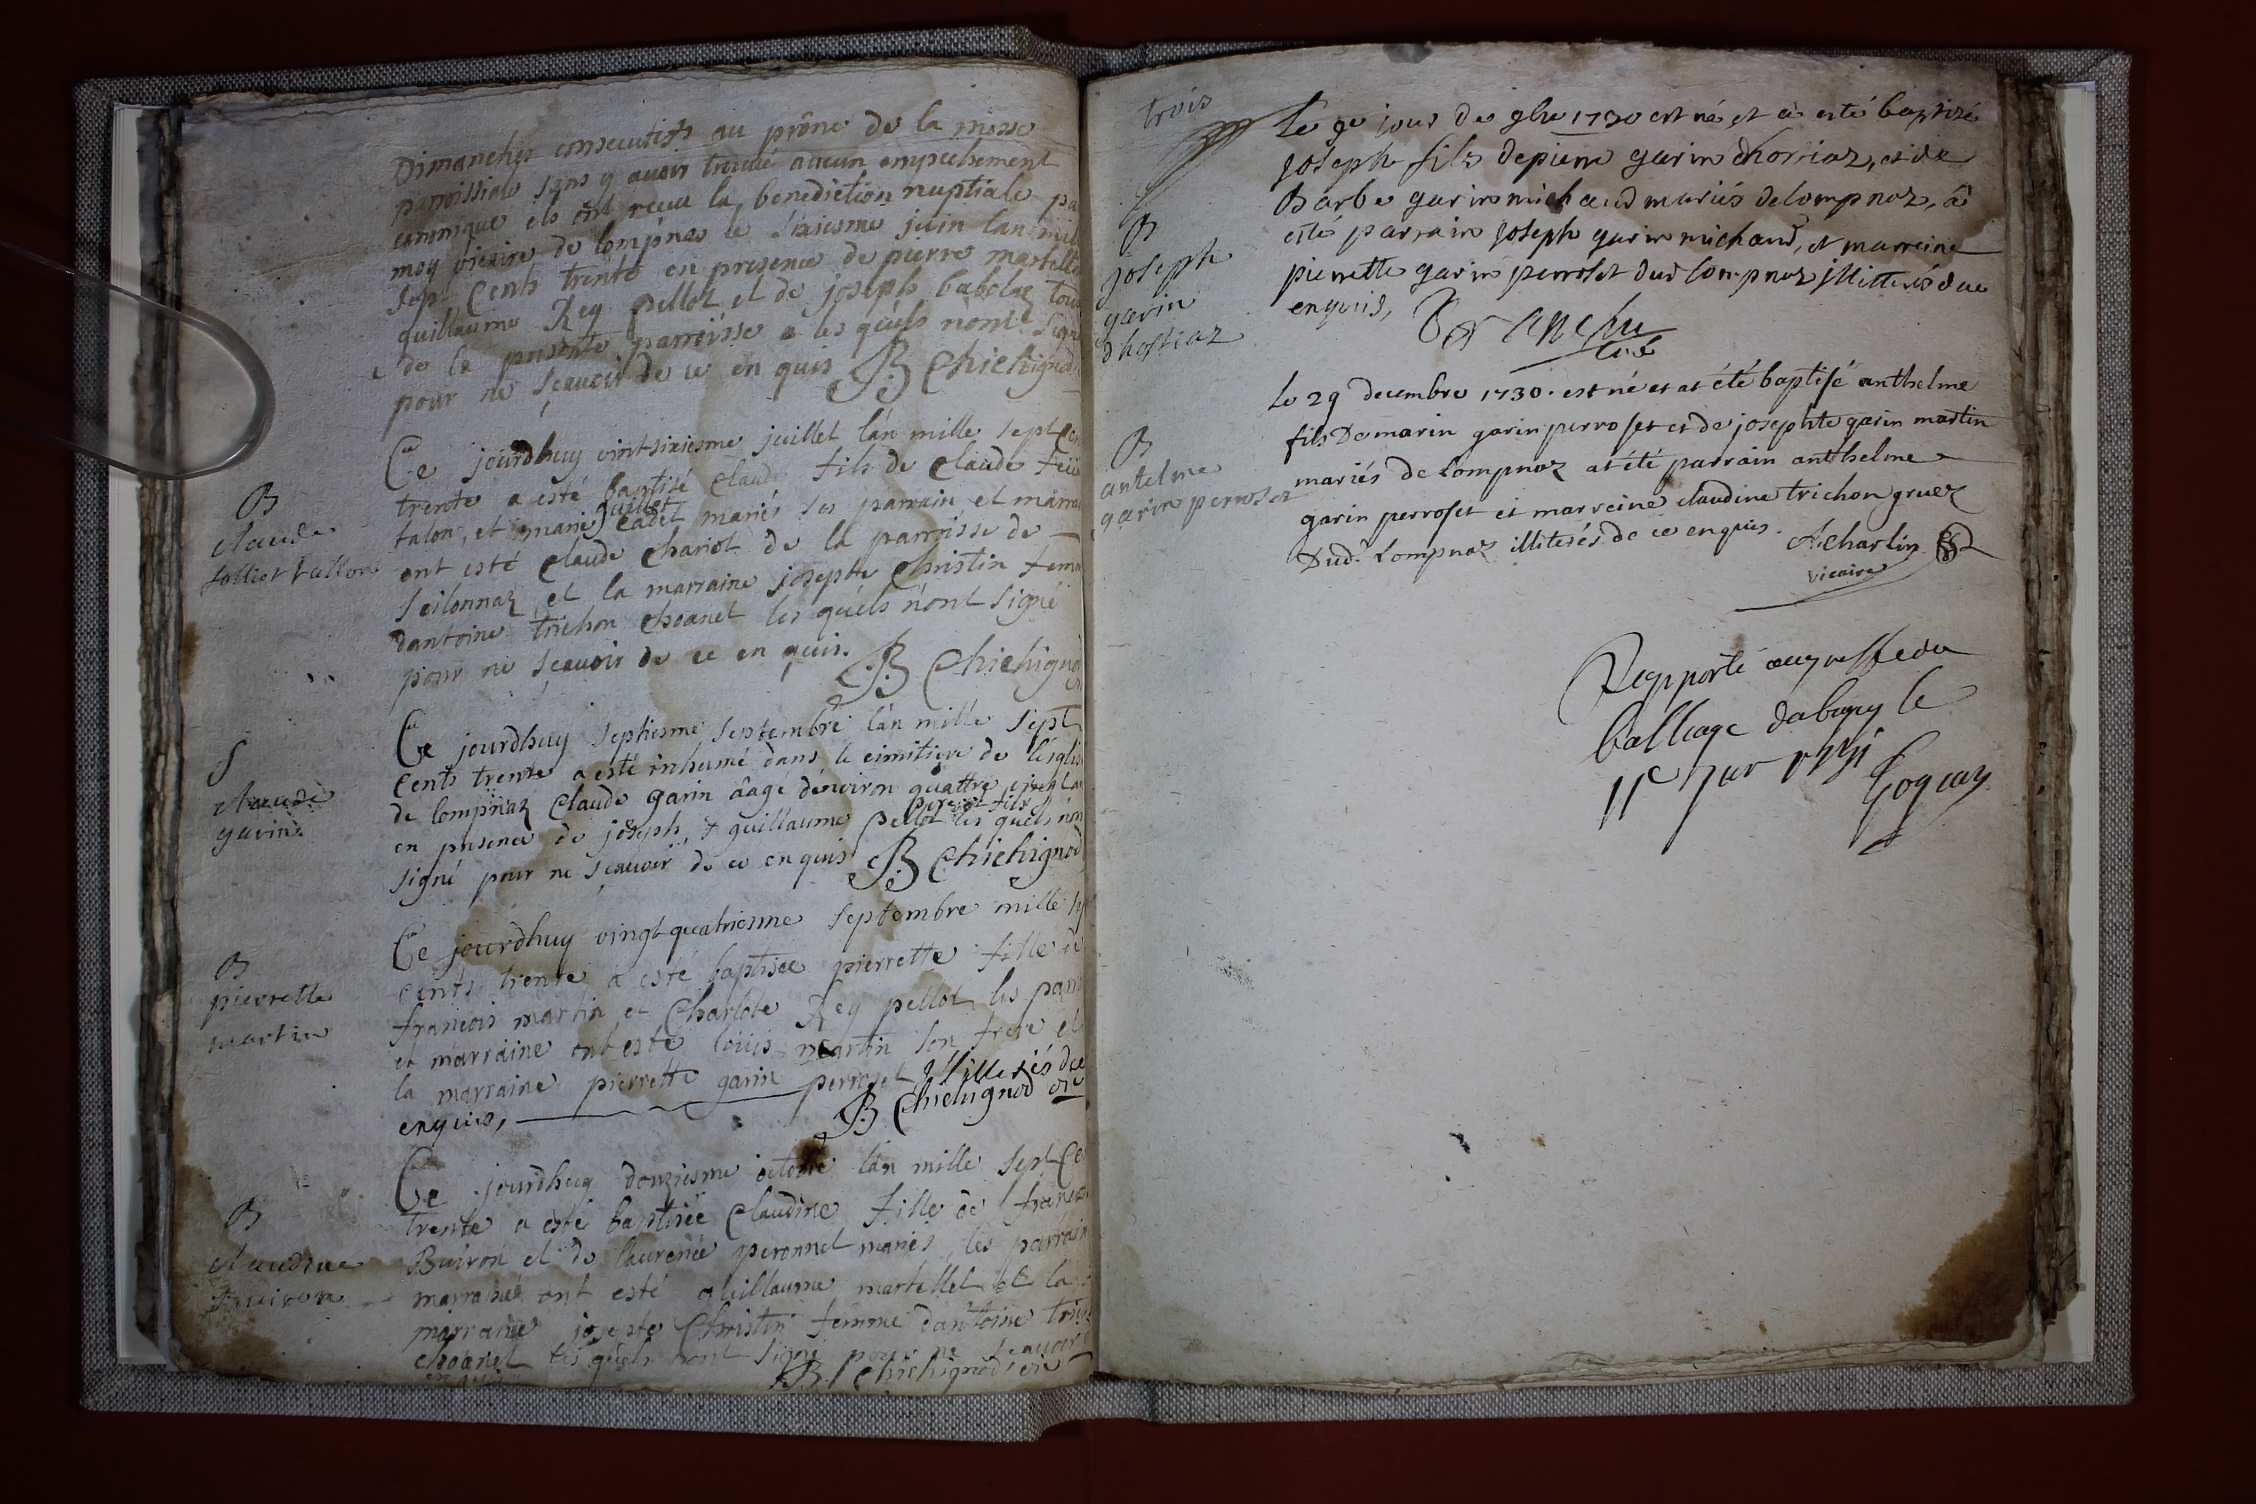 Dimanches consecutifs au prône de la messe
parroissiale sans y avoir trouvé aucun empechement
canonique ils ont receu la benediction nuptiale pa
moy vicaire de lompnas le sixiesme juin lan mil
sept cents trente en presence de pierre martelle
guillaume Rey pellot et de joseph babolaz tous
de la presente parroisse les quels nont signé
pour ne sçavoir de ce en quis B Chichignod
B
claude
Ce jourdhuy vint sixiesme juillet lan mille sept cen
trente a esté baptisé claude fils de claude
talon, et marie juillet cadet mariés ses parrain et marra
ont esté claude chariot de la parroisse de
seilonnaz et la marraine josepte Christin fem
dantoine trichon choanet les quels nont signé
pour ne sçavoir de ce en quis. B Chichignod
S
claude
garin
Ce jourdhuy septiesme septembre lan mille sept
cents trente a esté inhumé dans le cimitiere de léglis
de lompnaz Claude garin âagé dénviron quattre vingt
en presence de joseph, & guillaume pellot les quels non
signé pour ne sçavoir de ce en quis B Chichignod
B
pierrette
martin
Ce jourdhuy vingt quatriesme septembre mille s
cents trente a esté baptisée pierrette fille de
francois martin et Charlote Rey pellot les parr
et marraine ont esté louis martin son frere et
la marraine pierrette garin perroset illiterés de ce
enquis, B Chichignod vic
B
claudine
Buiron
Ce jourdhuy douziesme octobre lan mille sept ce
trente a esté baptisée Claudine fille de francois
Buiron et de laurence peronnet mariés, les parrain
ont esté guillaume martellet et la
marraine josepte Christin femme dantoine tri
choanet les quels nont signé pour ne sçavoir
en quis B Chichignod vic
trois
B
joseph
garin
dhostiaz
Le 9e jour de 9bre 1730 est né et a esté baptisé
joseph fils de pierre garin dhostiaz, et de
Barbe garin michaud mariés de lompnaz, a
esté parrain joseph garin michaud, et marreine
pierrette garin perroset dud lompnaz illitterés de ce
enquis,
B
antelme
garin perroset
Le 29 decembre 1730. est né et at été baptisé anthelme
fils de marin garin perroset et de josephte garin martin
mariés de Lompnaz at été parrain anthelme
garin perroset et marreine claudine trichon gruez
Dud. Lompnaz illiterés de ce enquis. A charlin
vicaire
Rapporté au greffe du
balliage de bugey le